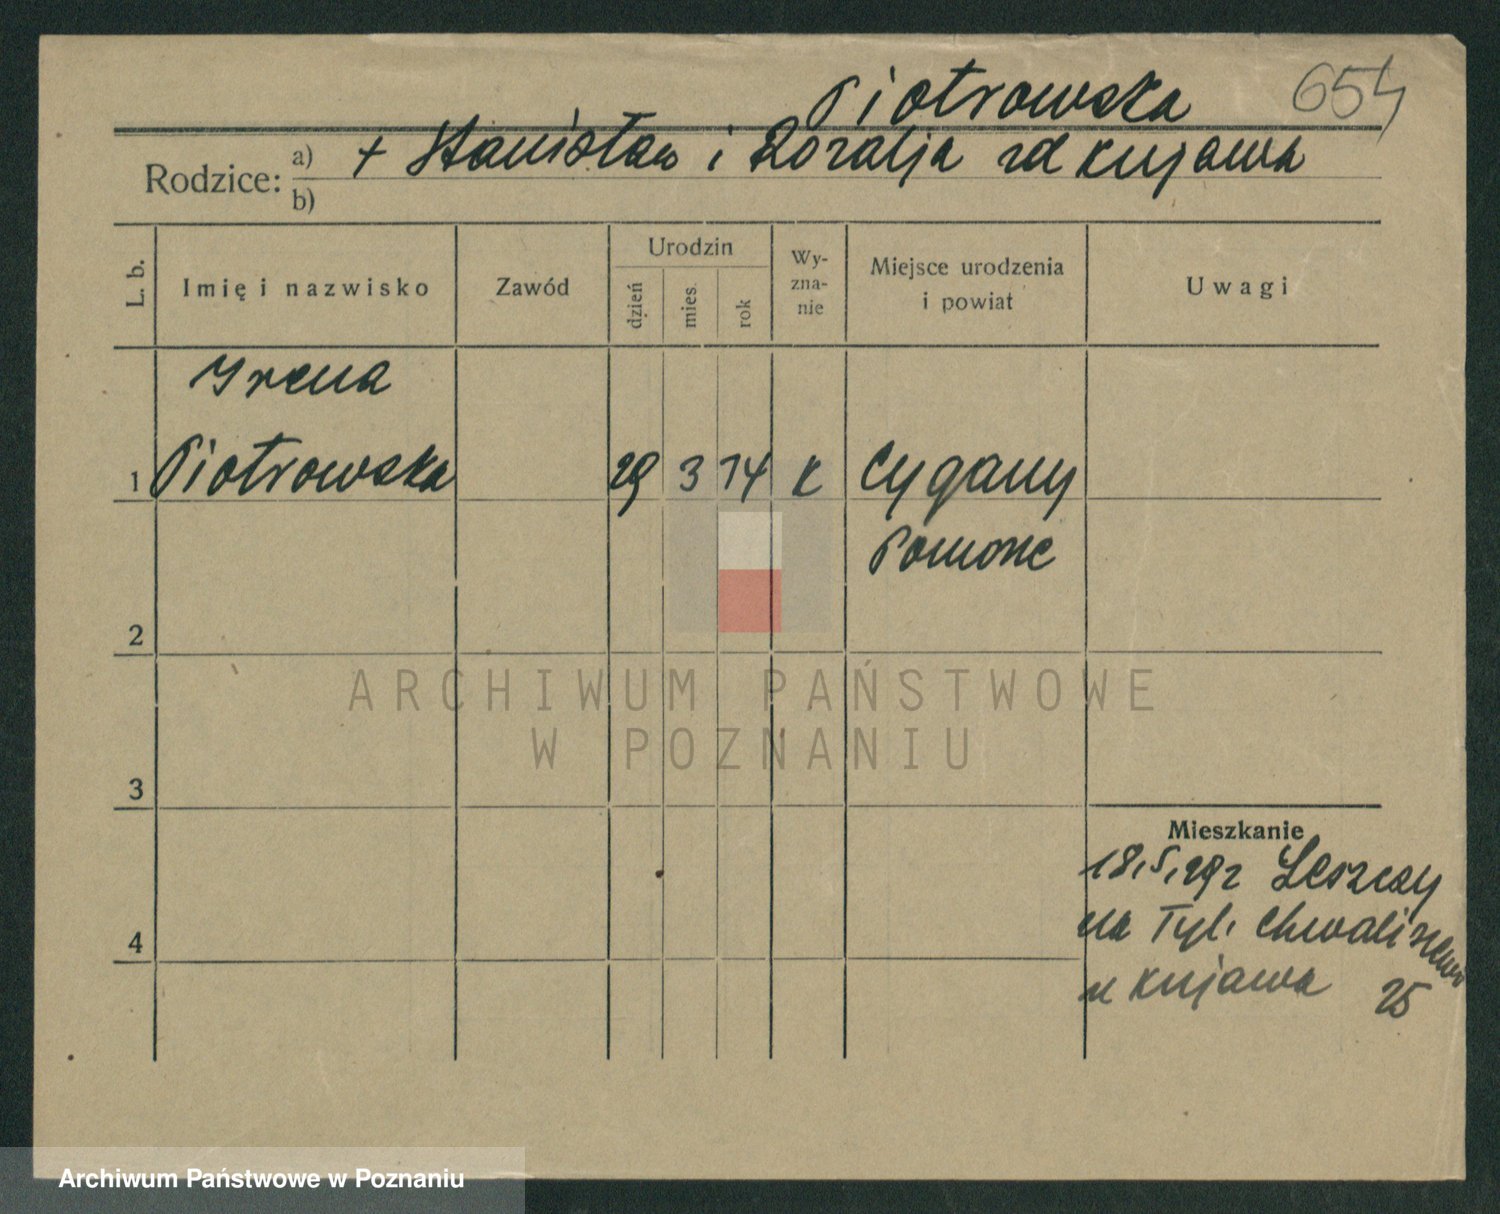 Piotrowska 654
Rodzice: a) + Stanisław i Rozalja zd Kujawa
b)
L. b. Imię i nazwisko Zawód Urodzin dzień mies. rok Wy-zna-nie Miejsce urodzenia i powiat Uwagi
Irena
1 Piotrowska 29 3 14 K Cygany
Pomorze
2
ARCHIWUM PAŃSTWOWE
W POZNANIU
3
Mieszkanie
18.5.29r Leszczy
na Tyl. Chwaliszewo
4
u Kujawa 25
Archiwum Państwowe w Poznaniu